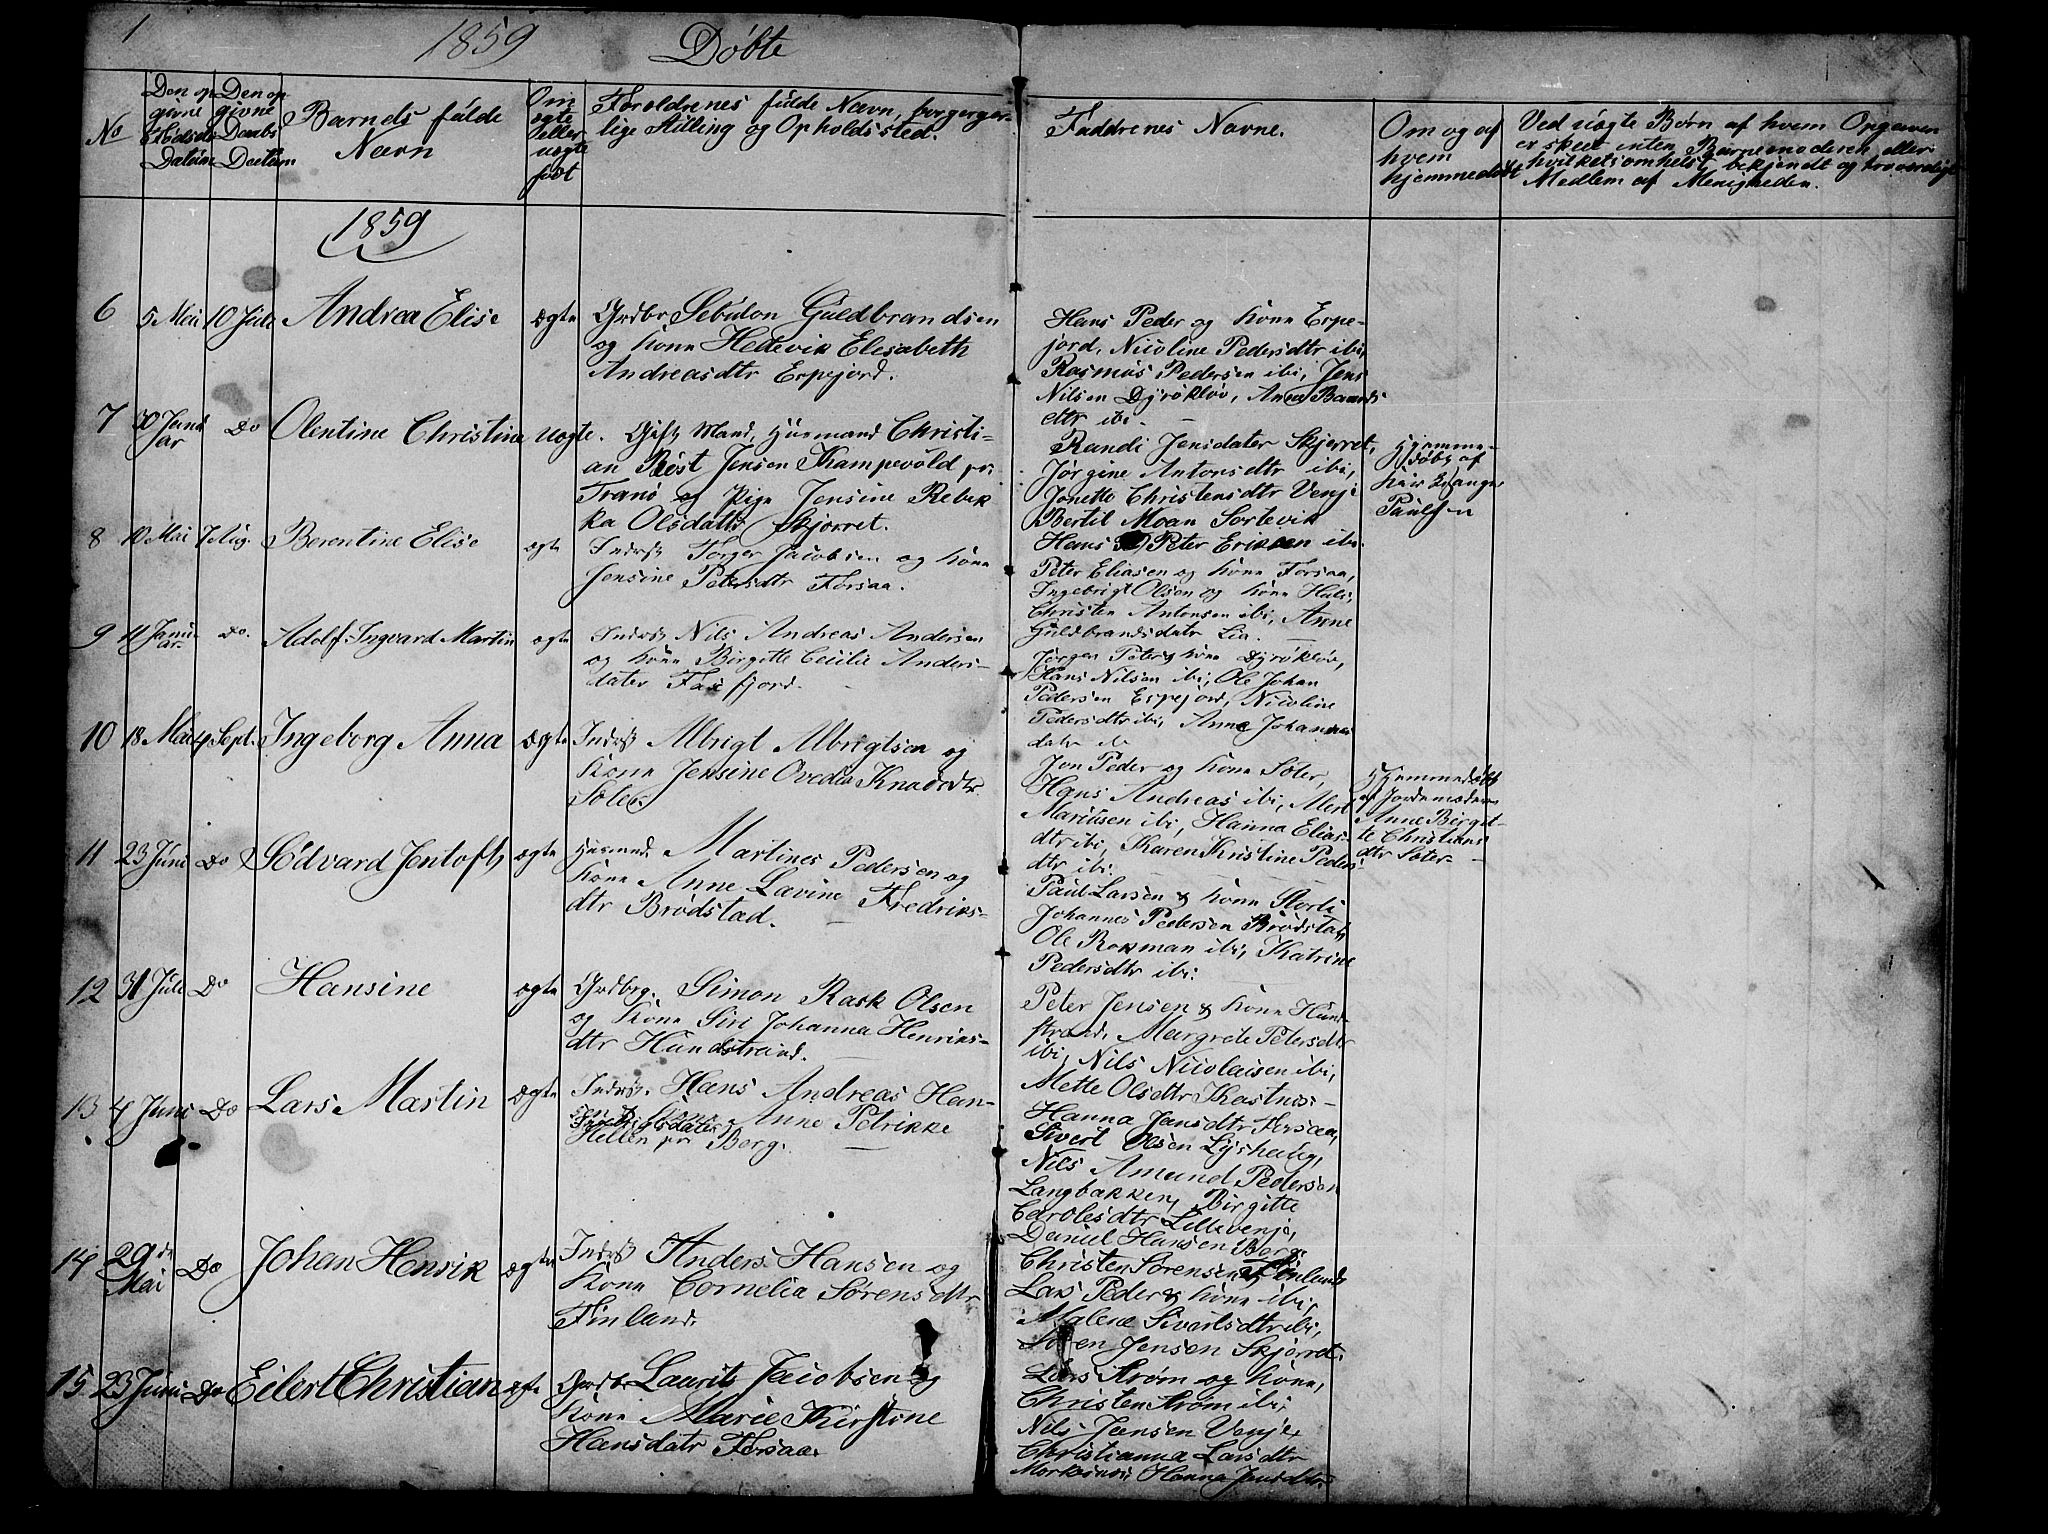 1
1859 Døbte
No
Den op
givne
Fødsels
Datum
Den op
givne
Daabs
Datum
Barnets fulde
Navn
Om
ægte
eller
uægte
født
Forældrenes fulde Navn, borgerger-
lige Stilling og Opholdssted.
Faddrenes Navne.
Om og af
hvem
hjemmedøbt
Ved uægte Børn af hvem Opgaven
er skeet enten Barnemoderen eller
hvilketsomhelst bekjendt og troværdigt
Medlem af Menigheden.
1859
6 5 Mai 10 Juli Andrea Elise ægte Grdbr Sebulon Guldbrandsen
og Kone Hedevik Elisabeth
Andreasdtr Erpejord.
Hans Peder og Kone Erpe-
jord, Nicoline Pedersdtr ibi,
Rasmus Pedersen ibi, Jens
Nilsen Dyrøkløv, Anne Baards
dtr ibi.
7 30 Janu
ar Do Olentine Christine uægte. Gift Mand, Husmand Christi-
an Røst Jensen Kampevold pr
Tranø og Pige Jensine Rebek
ka Olsdatter Skjerret.
Randi Jensdater Skjerret,
Jørgine Antonsdtr ibi,
Jonette Christensdtr Venje
Bertil Moan Sortevik
Hans Peter Eriksen ibi.
Hjemme-
døbt af
Paulsen
8 10 Mai 7 Aug. Berentine Elise ægte Indrst Torger Jacobsen og Kone
Jensine Petersdtr Forsaa.
Peter Eliasen og Kone Forsaa,
Ingebrigt Olsen og Kone Hals,
Christen Antonsen ibi, Anne
Guldbrandsdatr Lia.
9 11 Janu
ar Do. Adolf Ingvard Martin ægte Indrst Nils Andreas Andersen
og Kone Birgitte Cecilie Anders-
dater Faxfjord.
Jørgen Peter & Kone Dyrøkløv,
Hans Nilsen ibi, Ole Johan
Pedersen Erpejord, Nicoline
Pedersdtr ibi, Anne Johannes
datr ib
10 18 Mai 4 Sept. Ingeborg Anna ægte Indrst Albrigt Albrigtsen og
Kone Jensine Ovedia Knudsdtr
Solør
Jon Peder og Kone Soter,
Hans Andreas ibi,
Mariusen ibi, Hanna Elias-
dtr ibi, Karen Kristine Peders
dtr ibi.
Hjemmedøbt
af Jordemoderen
Anne Birgit-
te Christians
dtr Soter
11 23 Juni Do Sødvard Jentoft ægte Husmd. Martines Pedersen og
Kone Anne Lavine Fredriks-
dtr Brødstad.
Paul Larsen & Kone Storli
Johannes Pedersen Brødstad,
Ole Roxman ibi, Katrine
Pedersdtr ibi.
12 31 Juli Do Hansine ægte Grdbrg. Simon Rask Olsen
og Kone Siri Johanna Henriks-
dtr Hundstrand.
Peter Jensen & Kone Hund-
strand, Margrete Petersdtr
ibi, Nils Nicolaisen ibi,
Mette Olsdtr Kastnes-
13 4 Juni Do Lars Mastin ægte Indrst. Hans Andreas Han-
sen & Kone Anne Petrikke
Hellen pr Berg.
Hanna Jensdtr Forsaa,
Sivert Olsen Lysheug,
Nils Amund Pedersen
Langbakken, Birgitte
Carolesdtr Lillevenje,
Daniel Hansen Berg.
14 29de
Mai Do Johan Henrik ægte Indrst Anders Hansen og
Kone Cornelia Sørensdtr
Finland.
Christen Sørensen Finland
Lars Peder & Kone ibi,
Malene Sivertsdtr ibi,
Søren Jensen Skjerret.
15 23 Juni Do Eilert Christian ægte Grdbr Laurits Jacobsen og
Kone Marie Kirstine
Hansdatr Forsaa.
Lars Strøm og Kone,
Christen Strøm ibi,
Nils Jensen Venje
Christianna Larsdtr
Hanna Jensdtr